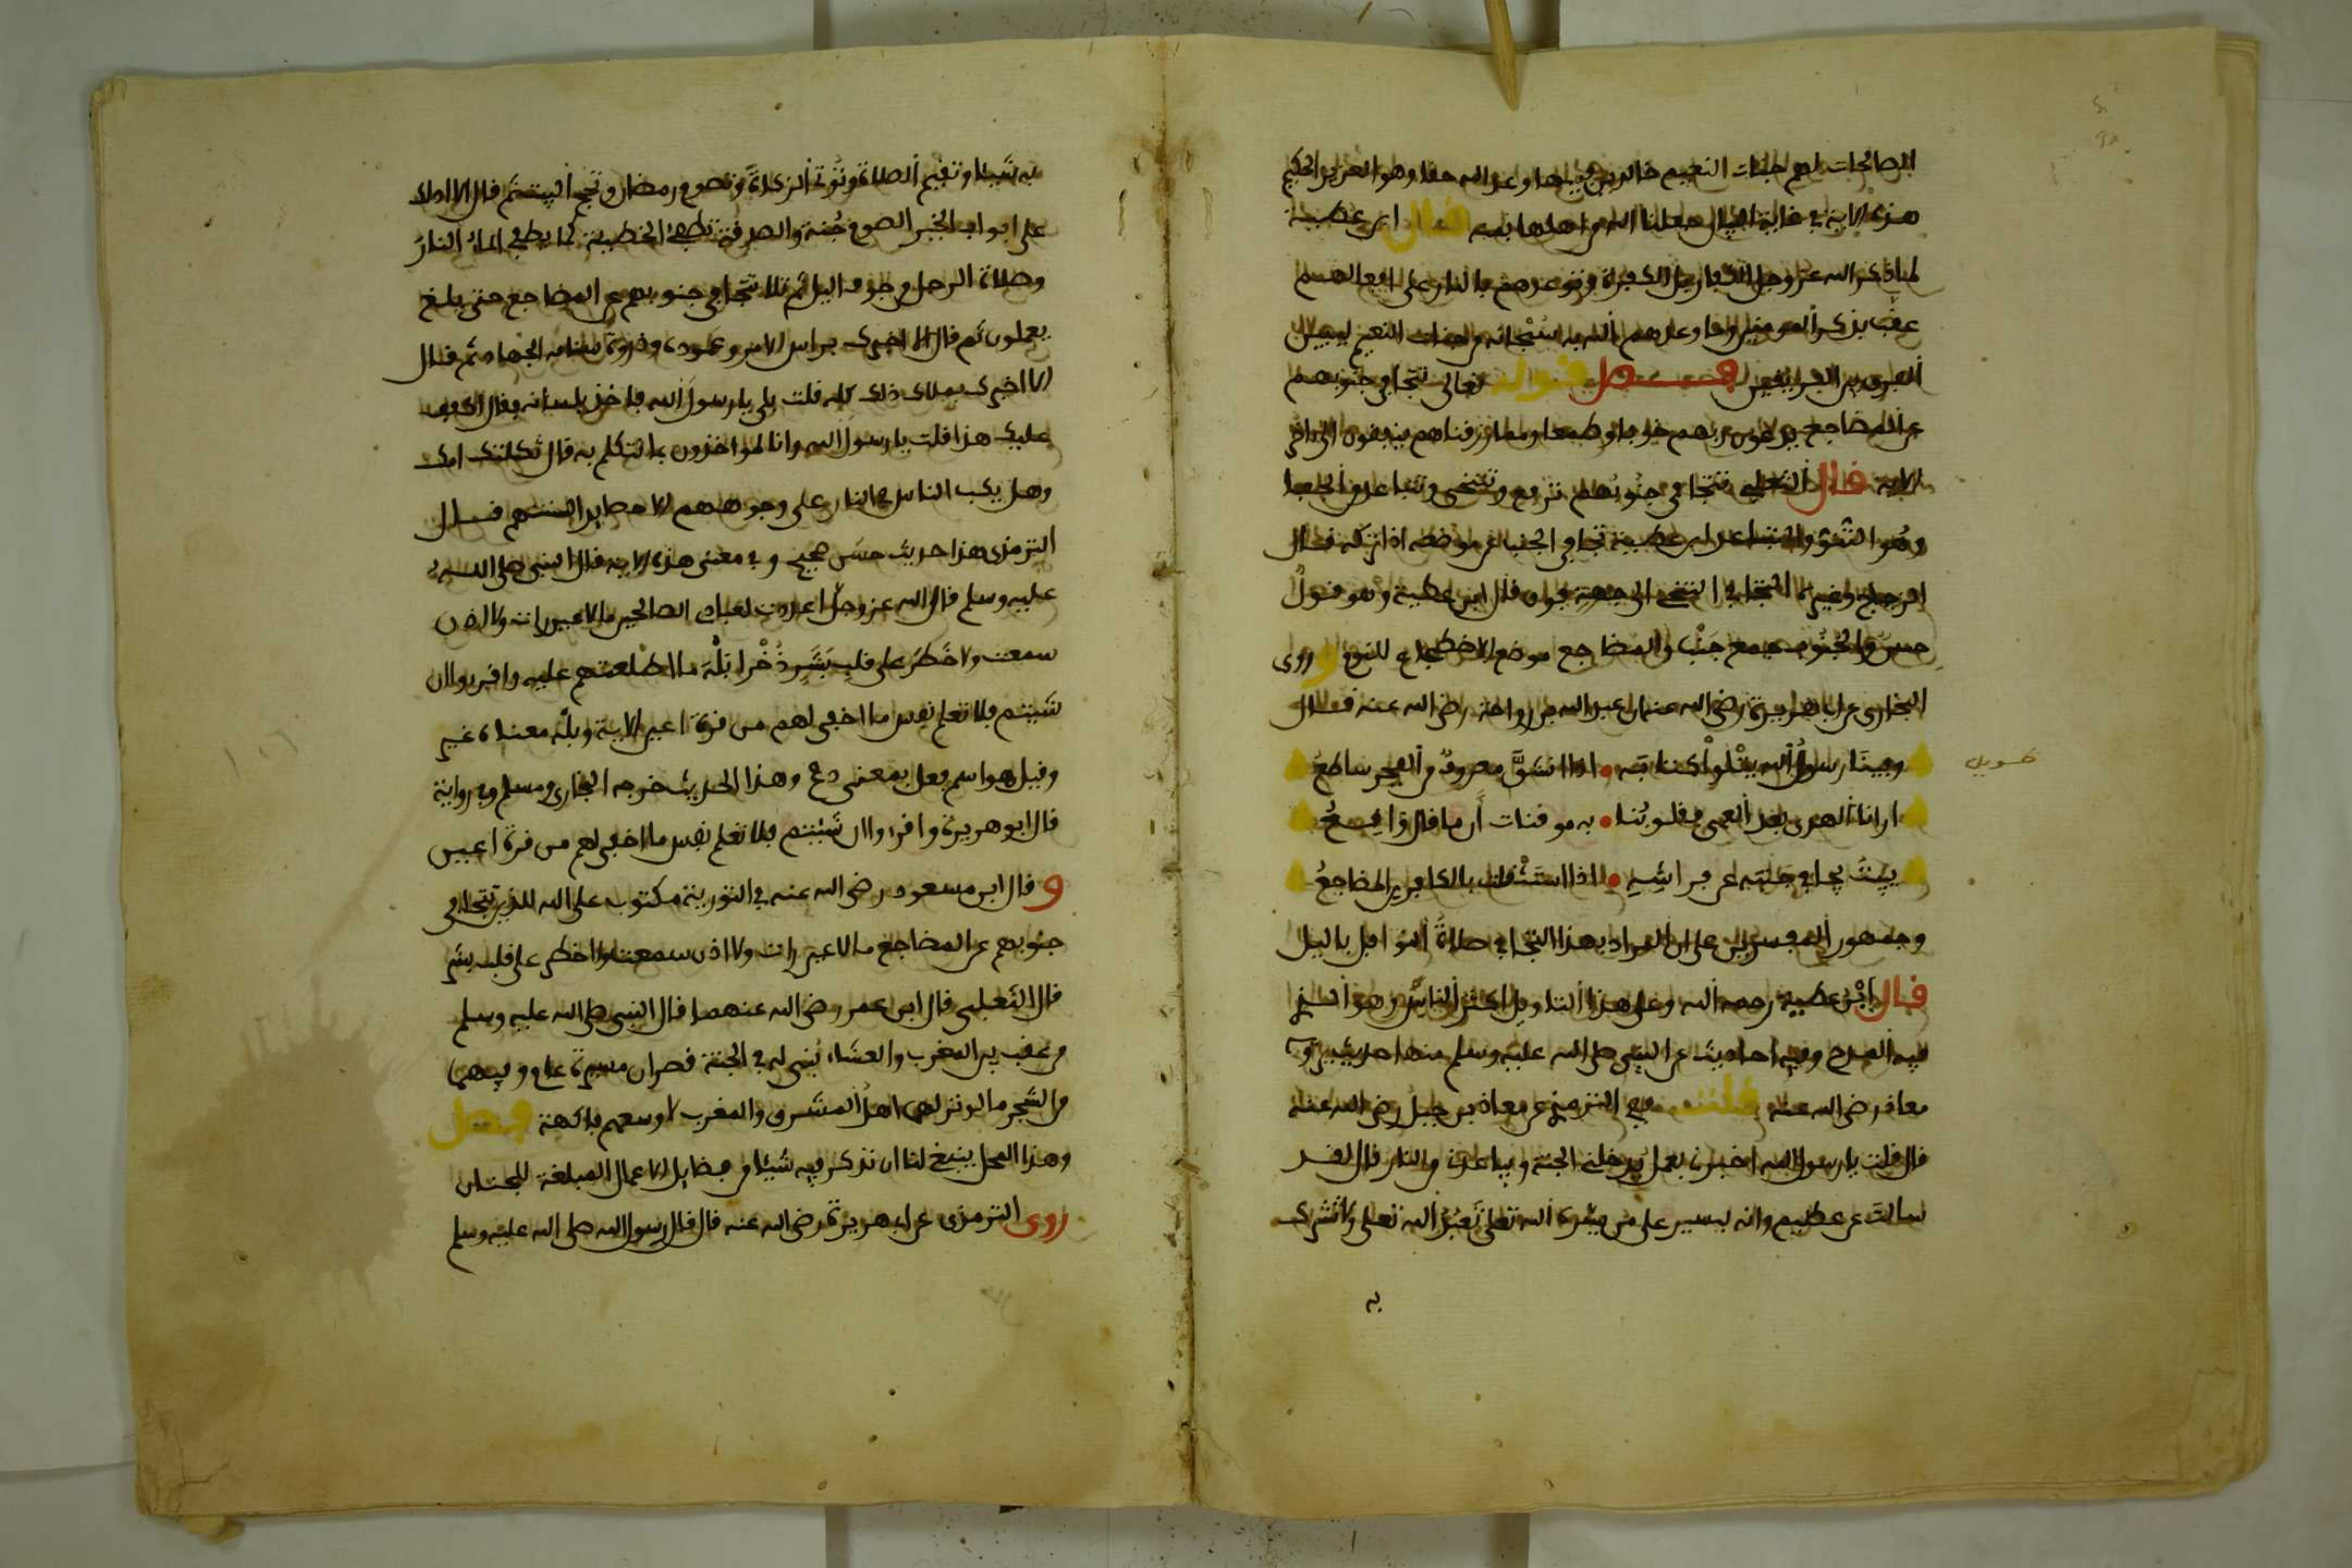 الصالحات لهم جنات النعيم خالدين فيها وعد الله حقا وهو العزيز الحكيم
هذه الاية في غاية البيان جعلنا الله من اهلها بمنه قال ابن عطية
لما ذكر الله عز وجل الكفار من الكفرة وتوعدهم بالنار على افعالهم
عقب بذكر المومنين وما وعدهم الله به سبحانه من جنات النعيم ليبين
الفرق بين الفريقين فصل قوله تعالى تتجافى جنوبهم
عن المضاجع يدعون ربهم خوفا وطمعا ومما رزقناهم ينفقون الى اخر
الاية قال الثعلبي تتجافى جنوبهم ترتفع وتتنحى وتتباعد والجفا
وهو النبو والتباعد ابن عطية تجافى الجنب عن موضعه اذا تركه قال
الزجاج وغيره التجافي التنحي الى جهة فوق قال ابن عطية وهو قول
حسن والجنوب جمع جنب والمضاجع موضع الاضطجاع للنوم وروى
البخاري عن ابي هريرة رضي الله عنه ان عبد الله بن رواحة رضي الله عنه قال
وفينا رسول الله يتلوا كتابه • اذا انشق معروف من الفجر ساطع
ارانا الهدى بعد العمى فقلوبنا • به موقنات ان ما قال واقع
يبيت يجافي جنبه عن فراشه • اذا استثقلت بالكافرين المضاجع
وجمهور المفسرين على ان المراد بهذا التجافي صلاة النوافل بالليل
قال ابن عطية رحمه الله وعلى هذا التاويل اكثر الناس وهو الذي
فيه المدح وفيه احاديث عن النبي صلى الله عليه وسلم منها حديث
معاذ رضي الله عنه قلت وفي الترمذي عن معاذ بن جبل رضي الله عنه
قال قلت يا رسول الله اخبرني بعمل يدخلني الجنة ويباعدني من النار قال لقد
سالت عن عظيم وانه ليسير على من يسره الله تعلى تعبد الله تعلى ولا تشرك
به
به شيئا وتقيم الصلاة وتوتي الزكاة وتصوم رمضان وتحج البيت ثم قال الا ادلك
على ابواب الخير الصوم جنة والصدقة تطفئ الخطيئة كما يطفي الماء النار
وصلاة الرجل في جوف اليل ثم تلا تتجافى جنوبهم عن المضاجع حتى بلغ
يعملون ثم قال الا اخبرك براس الامر وعموده وذروة سنامه الجهاد ثم قال
الا اخبرك بملاك ذلك كله قلت بلى يا رسول الله فاخذ بلسانه وقال اكفف
عليك هذا قلت يا رسول الله وانا لمواخذون بما نتكلم به قال ثكلتك امك
وهل يكب الناس في النار على وجوههم الا حصايد السنتهم قال
الترمذي هذا حديث حسن صحيح وفي معنى هذه الاية قال النبي صلى الله
عليه وسلم قال الله عز وجل اعددت لعبادي الصالحين ما لا عين رات ولا اذن
سمعت ولا خطر على قلب بشر ذخرا بله ما اطلعتهم عليه واقرءوا ان
شيتم فلا تعلم نفس ما اخفي لهم من قرة اعين الاية وبله معناه غير
وقيل هو اسم فعل بمعنى دع وهذا الحديث خرجه البخاري ومسلم وفي رواية
قال ابو هريرة واقرءوا ان شيتم فلا تعلم نفس ما اخفي لهم من قرة اعين
وقال ابن مسعود رضي الله عنه في التورية مكتوب على الله للذين تتجافى
جنوبهم عن المضاجع ما لا عين رات ولا اذن سمعت ولا خطر على قلب بشر
قال الثعلبي قال ابن عمر رضي الله عنهما قال النبي صلى الله عليه وسلم
من عقب بين المغرب والعشاء بني له في الجنة قصران مسيرة عام وفيهما
من الشجر ما لو نزلهما اهل المشرق والمغرب لاوسعهم فاكهة فصل
وهذا المحل ينبغي لنا ان نذكر فيه شيئا من فضايل الاعمال المبلغة للجنان
روى الترمذي عن ابي هريرة رضي الله عنه قال قال رسول الله صلى الله عليه وسلم